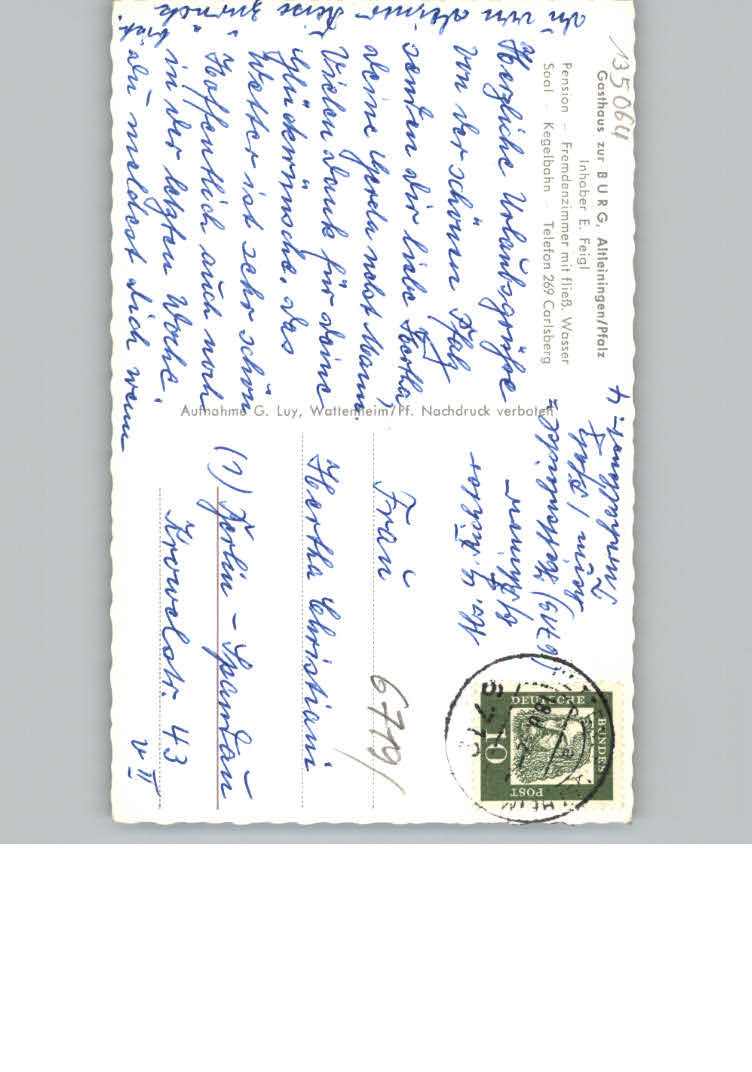 135064
Gasthaus zur BURG, Altleiningen/Pfalz
Inhaber E. Feigl
Pension – Fremdenzimmer mit fließ. Wasser
Saal – Kegelbahn – Telefon 269 Carlsberg
Herzliche Urlaubsgrüße
von der schönen Pfalz
senden dir liebe Hertha
deine Gerda nebst Mann.
Vielen Dank für deine
Glückwünsche. Das
Wetter ist sehr schön
Hoffentlich auch noch
in der letzten Woche.
du meldest dich wenn
du von deiner Reise zurück bist.
Aufnahme G. Luy, Wattenheim/Pf. Nachdruck verboten
(6719)
DEUTSCHE BUNDESPOST
10
Frau
Hertha Christiani
(1) Berlin – Spandau
Krowelstr. 43
v II
6719/